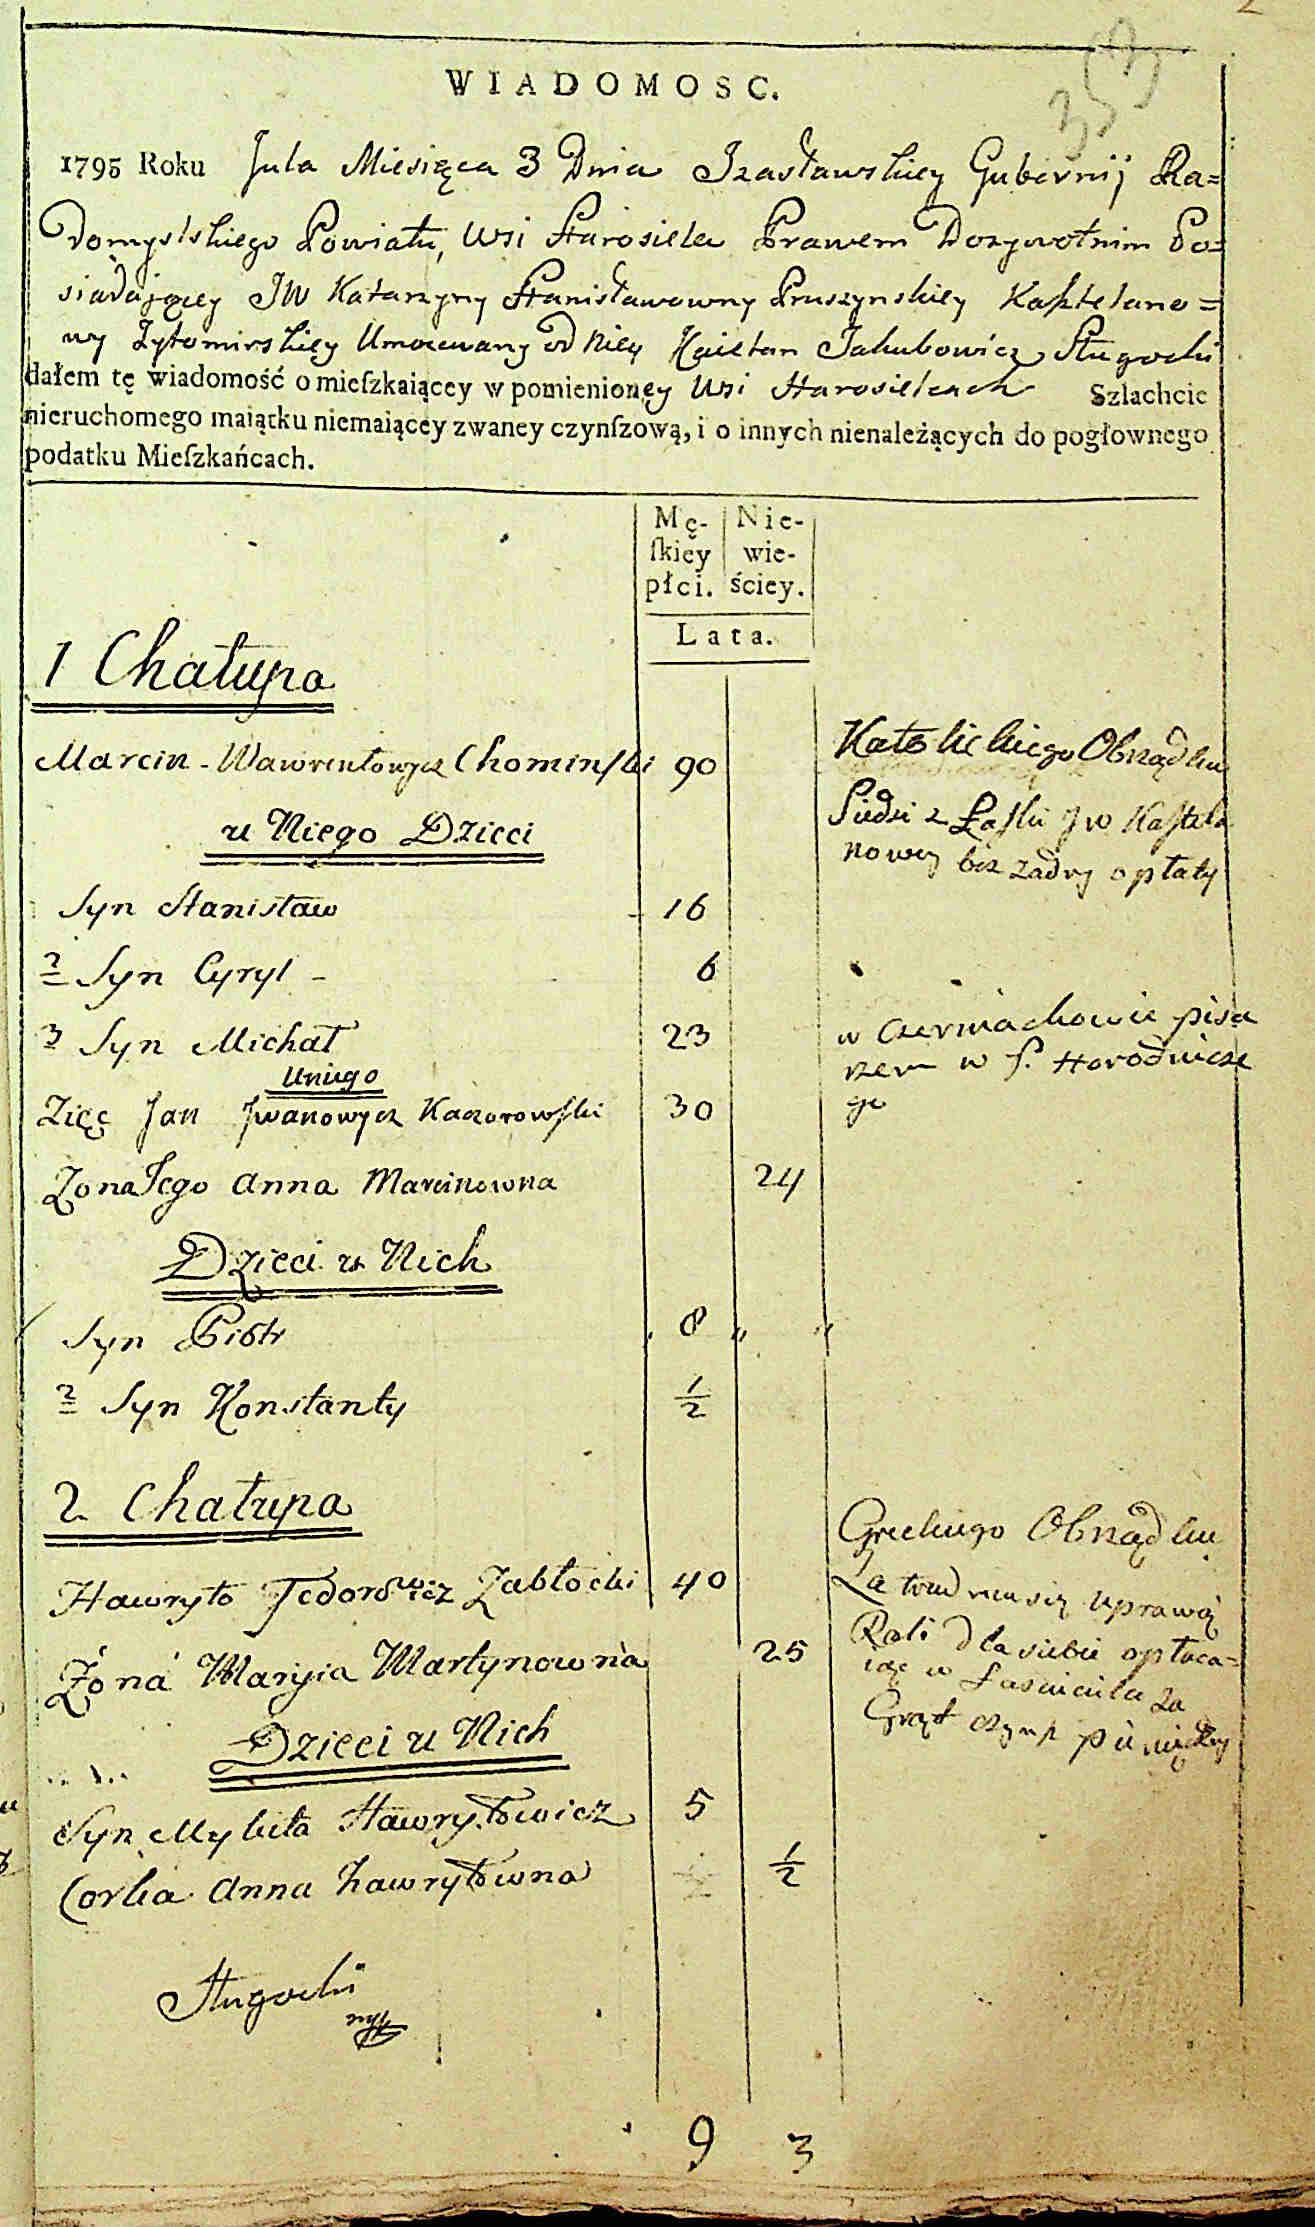 WIADOMOSC.
1795 Roku Jula Miesięca 3 Dnia Izasławskiey Gubernij Ra=
domyslskiego Powiatu, Wsi Starosiela Prawem Dożywotnim Po=
siadaiącey JW Katarzyny Stanisławowny Pruszynskiey Kasztelano=
wy Zytomirskiey Umocowany od Niey Kaietan Jakubowicz Sługocki
dałem tę wiadomość o mieſzkaiącey w pomienioney Wsi Starosielcach Szlachcie
nieruchomego maiątku niemaiącey zwaney czynſzową, i o innych nienależących do pogłownego
podatku Mieſzkańcach.
Mę- Nie-
ſkiey wie-
płci. ściey.
Lata.
1 Chałupa
Marcin Wawrentowycz Chominſki 90 Katolickiego Obrządku
u Niego Dzieci Siedzi z Łaſki JW Kaſztela
nowey bez żadny opłaty
Syn Stanisław 16
2 Syn Cyryl 6
3 Syn Michał 23 w Czerniachowie pisa
rzem w S. Horodnicze
go
Uniego
Zięć Jan Jwanowycz Kaczorowſki 30
Zona Jego Anna Marcinowna 24
Dzieci u Nich
Syn Piotr 8 " "
2 Syn Konstanty 1/2
2 Chałupa
Greckiego Obrządku
Hawryło Fedorowicz Zabłocki 40 Za trud uprawą
Roli dla siebie opłaca=
Żona Maryia Martynowna 25
iąc w za
Grąt czynſz
Dzieci u Nich
Syn Mykita Hawryłowicz 5
Corka Anna hawryłowna 1/2
Sługocki
mp
9 3